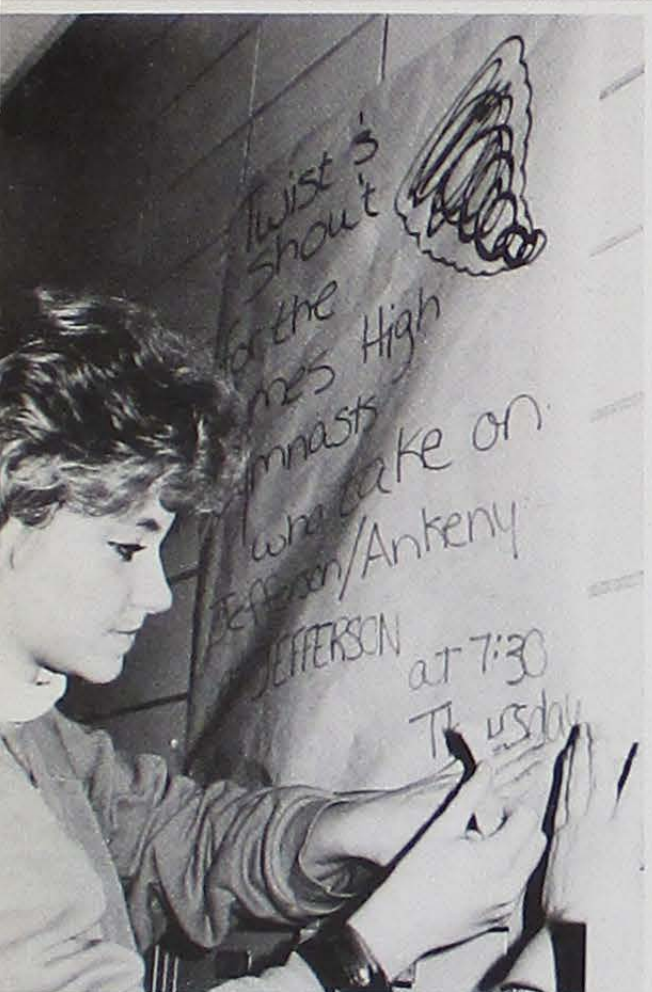 Twist 's
shout
for the
mes High
mnasts
who take on
Jefferson/Ankeny
JEFFERSON
at 7:30
Thursday